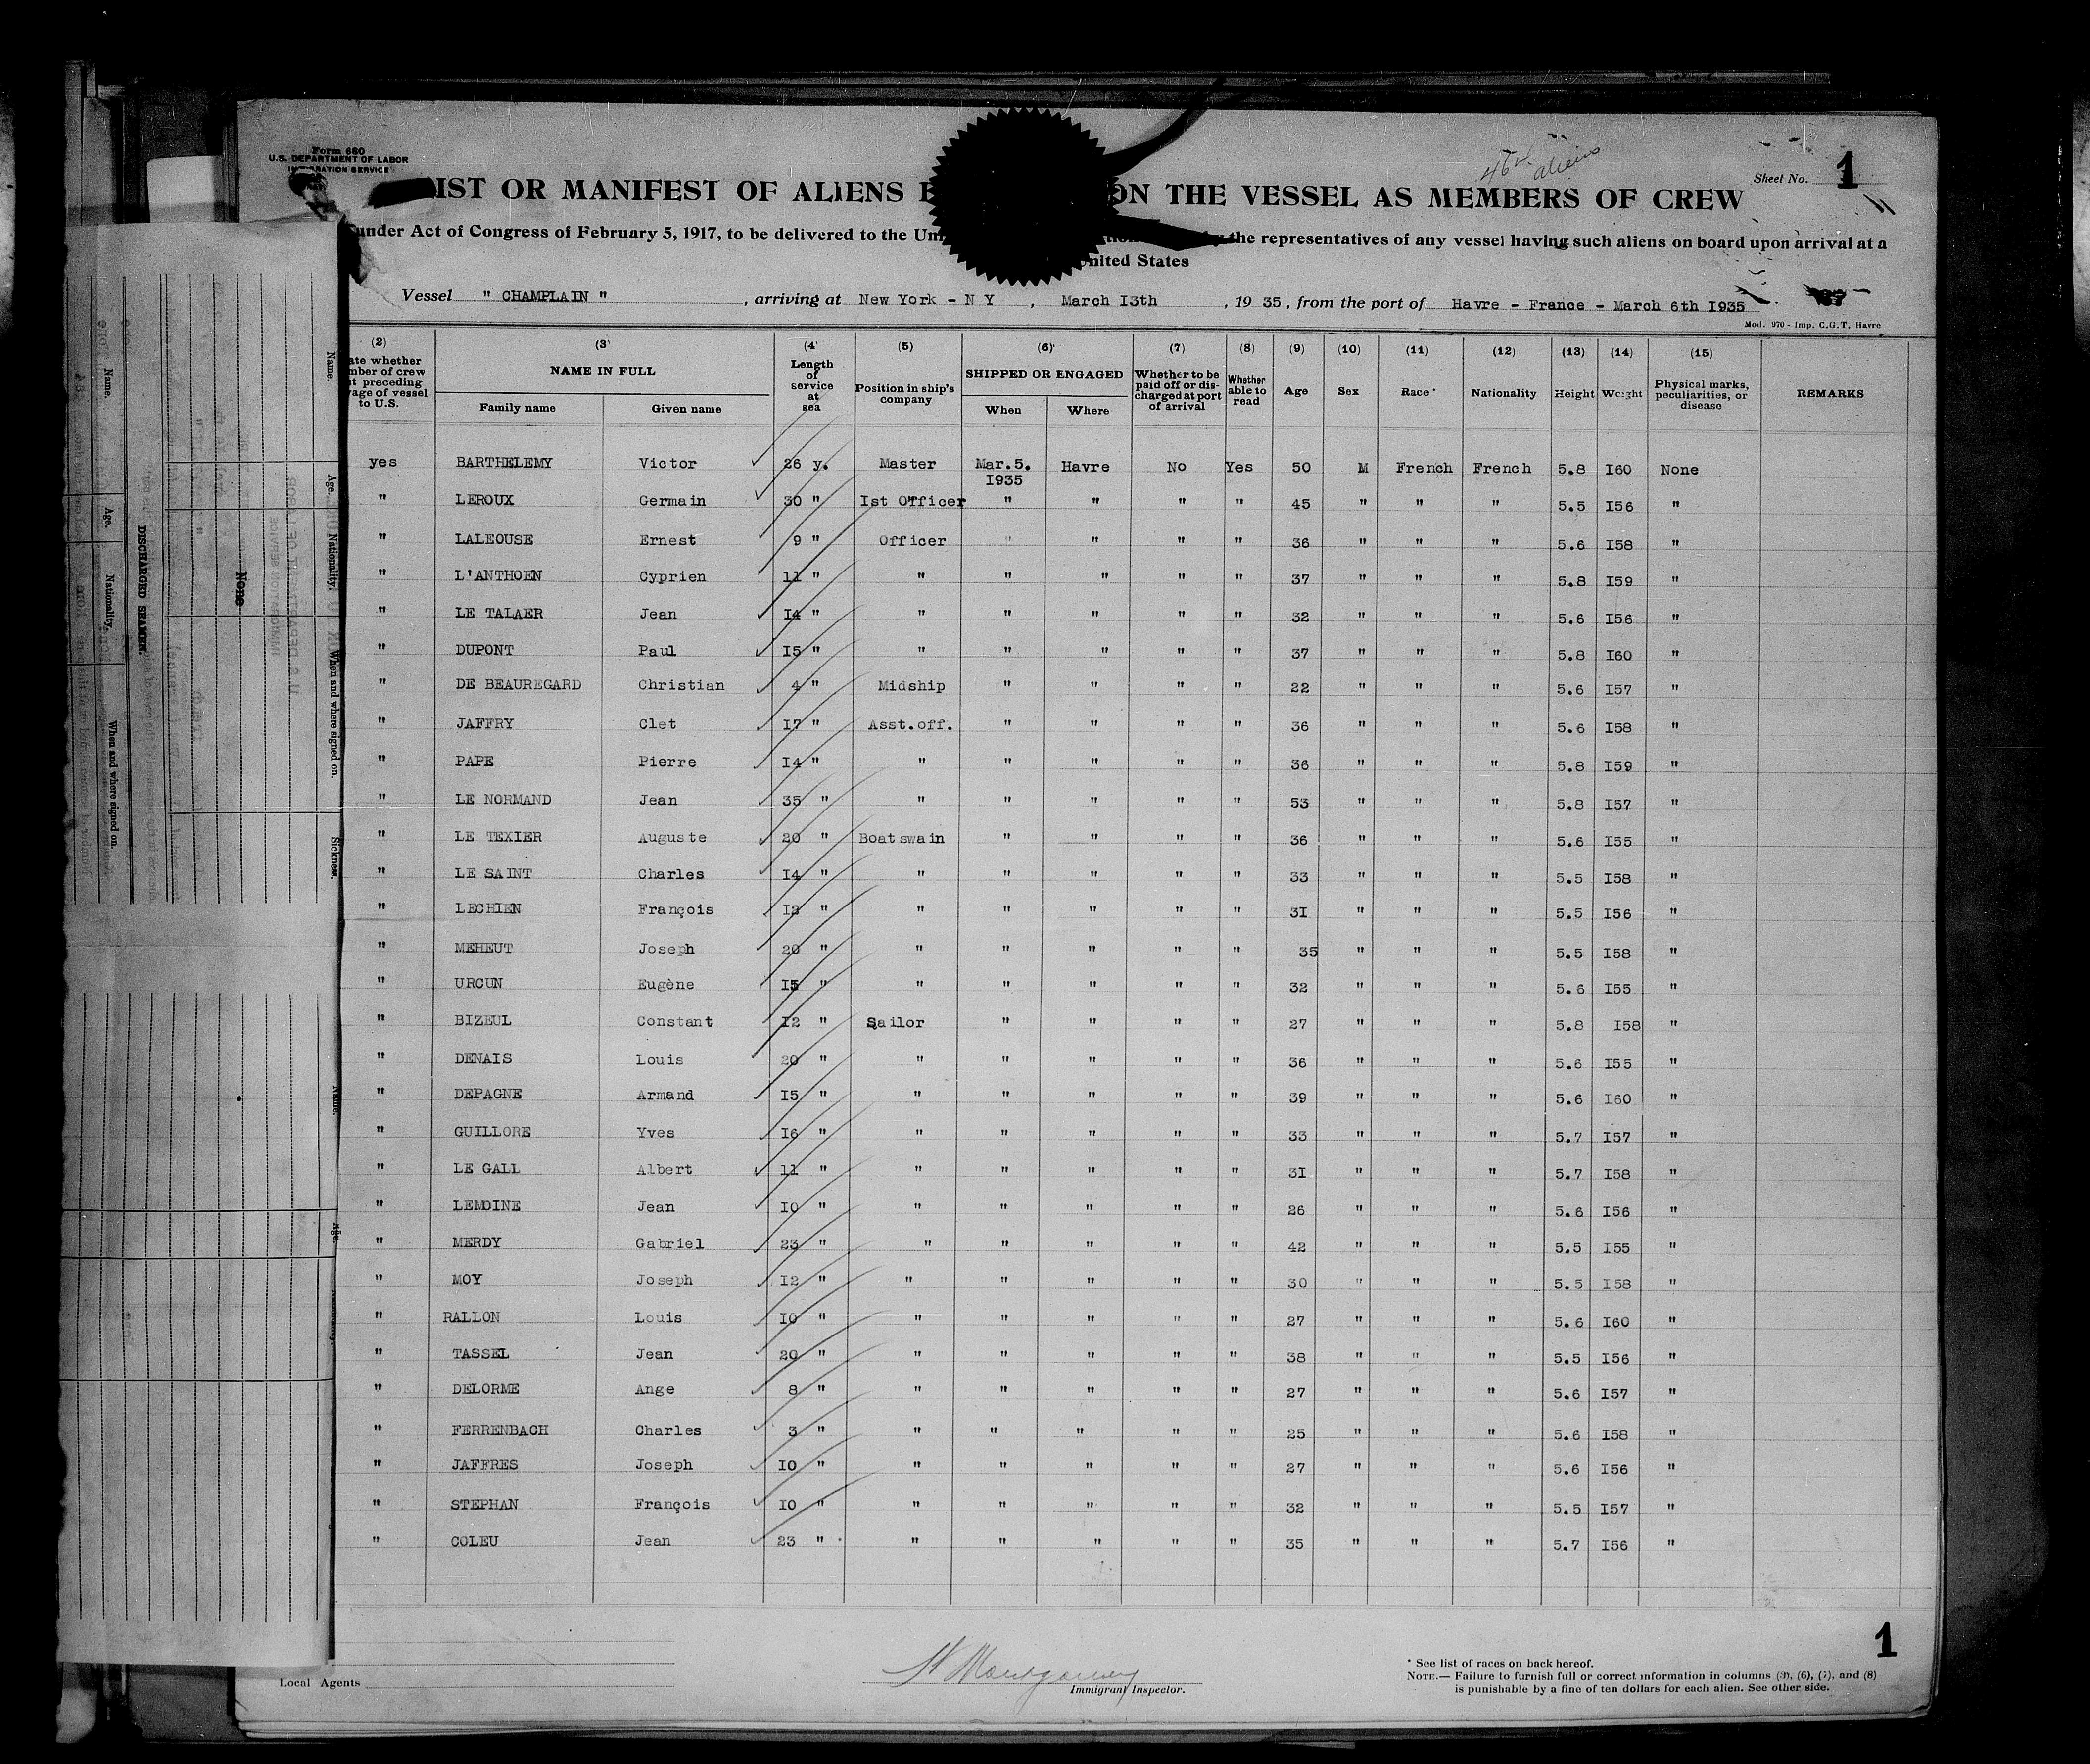 Form 680
U.S. DEPARTMENT OF LABOR
IMMIGRATION SERVICE
aliens
Sheet No. 1
LIST OR MANIFEST OF ALIENS E ON THE VESSEL AS MEMBERS OF CREW
under Act of Congress of February 5, 1917, to be delivered to the Uni the representatives of any vessel having such aliens on board upon arrival at a
United States
Vessel " CHAMPLAIN " , arriving at New York - N Y , March I3th , 19 35 , from the port of Havre - France - March 6th I935
Mod. 970 - Imp. C.G.T. Havre
(2) (3) (4) (5) (6) (7) (8) (9) (10) (11) (12) (13) (14) (15)
ate whether
mber of crew
t preceding
age of vessel
to U.S.
NAME IN FULL
Family name Given name
Length
of
service
at
sea
Position in ship's
company
SHIPPED OR ENGAGED
When Where
Whether to be
paid off or dis-
charged at port
of arrival
Whether
able to
read
Age Sex Race * Nationality Height Weight
Physical marks,
peculiarities, or
disease
REMARKS
yes BARTHELEMY Victor 26 y. Master Mar.5. I935 Havre No Yes 50 M French French 5.8 I60 None
" LEROUX Germain 30 " Ist Officer " " " " 45 " " " 5.5 I56 "
" LALEOUSE Ernest 9 " Officer " " " " 36 " " " 5.6 I58 "
" L'ANTHOEN Cyprien 11 " " " " " " 37 " " " 5.8 I59 "
" LE TALAER Jean I4 " " " " " " 32 " " " 5.6 I56 "
" DUPONT Paul I5 " " " " " " 37 " " " 5.8 I60 "
" DE BEAUREGARD Christian 4 " Midship " " " " 22 " " " 5.6 I57 "
" JAFFRY Clet I7 " Asst.off. " " " " 36 " " " 5.6 I58 "
" PAPE Pierre I4 " " " " " " 36 " " " 5.8 I59 "
" LE NORMAND Jean 35 " " " " " " 53 " " " 5.8 I57 "
" LE TEXIER Auguste 20 " Boatswain " " " " 36 " " " 5.6 I55 "
" LE SAINT Charles I4 " " " " " " 33 " " " 5.5 I58 "
" LECHIEN François I2 " " " " " " 3I " " " 5.5 I56 "
" MEHEUT Joseph 20 " " " " " " 35 " " " 5.5 I58 "
" URCUN Eugène I5 " " " " " " 32 " " " 5.6 I55 "
" BIZEUL Constant I2 " Sailor " " " " 27 " " " 5.8 I58 "
" DENAIS Louis 20 " " " " " " 36 " " " 5.6 I55 "
" DEPAGNE Armand I5 " " " " " " 39 " " " 5.6 I60 "
" GUILLORE Yves I6 " " " " " " 33 " " " 5.7 I57 "
" LE GALL Albert 11 " " " " " " 3I " " " 5.7 I58 "
" LEMOINE Jean I0 " " " " " " 26 " " " 5.6 I56 "
" MERDY Gabriel 23 " " " " " " 42 " " " 5.5 I55 "
" MOY Joseph I2 " " " " " " 30 " " " 5.5 I58 "
" RALLON Louis I0 " " " " " " 27 " " " 5.6 I60 "
" TASSEL Jean 20 " " " " " " 38 " " " 5.5 I56 "
" DELORME Ange 8 " " " " " " 27 " " " 5.6 I57 "
" FERRENBACH Charles 3 " " " " " " 25 " " " 5.6 I58 "
" JAFFRES Joseph I0 " " " " " " 27 " " " 5.6 I56 "
" STEPHAN François I0 " " " " " " 32 " " " 5.5 I57 "
" COLEU Jean 23 " " " " " " 35 " " " 5.7 I56 "
1
Local Agents
Montgomery
Immigrant Inspector.
* See list of races on back hereof.
NOTE.— Failure to furnish full or correct information in columns (3), (6), (7), and (8)
is punishable by a fine of ten dollars for each alien. See other side.
Name. Age. Nationality. When and where signed on. Sickness.
None
DISCHARGED SEAMEN.
Name. Age. Nationality. When and where signed on.
Name. Age.